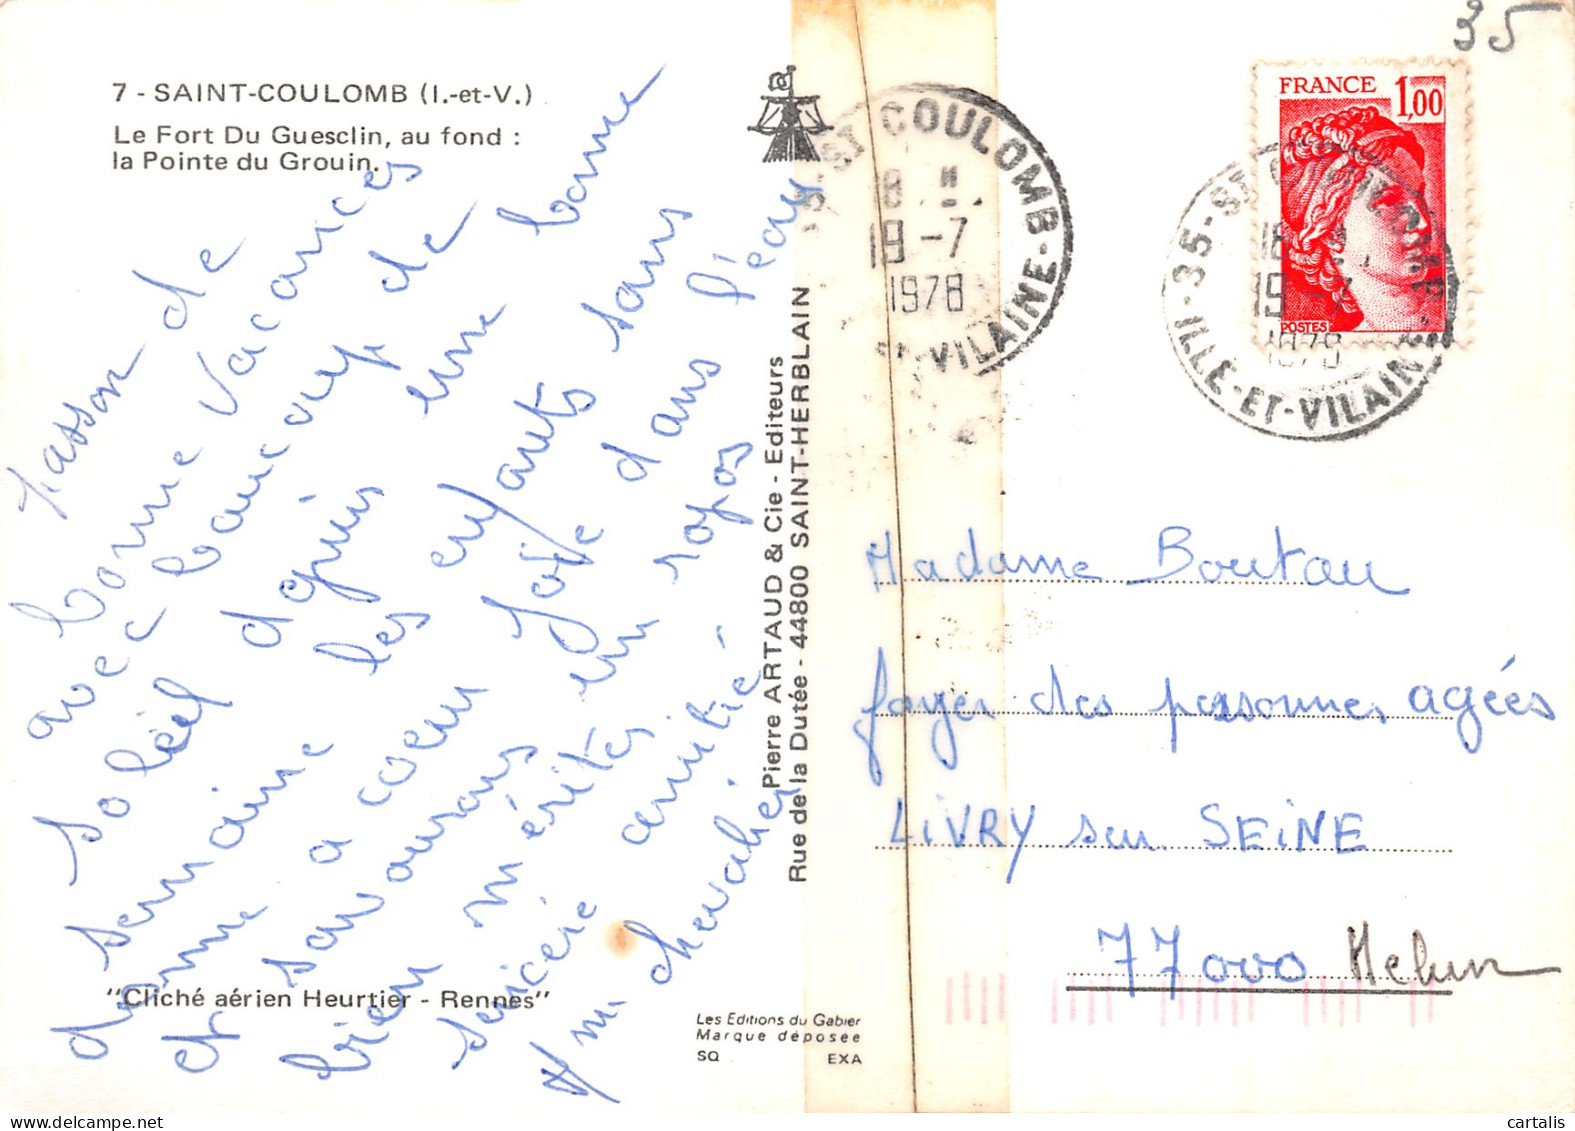 35
7 - SAINT-COULOMB (I.-et-V.)
Le Fort Du Guesclin, au fond :
la Pointe du Grouin.
Passons de
bonne vacances
avec beaucoup de
soleil depuis une bonne
semaine les enfants sans
donne a coeur joie dans l'eau
et savourons un repos
bien mérités
sincère amitié -
m. chevalier.
"Cliché aérien Heurtier - Rennes"
Les Editions du Gabier
Marque déposée
SQ EXA
Pierre ARTAUD & Cie - Editeurs
Rue de la Dutée - 44800 SAINT-HERBLAIN
ST COULOMB
19 -7
1978
ET-VILAINE
FRANCE 1,00
POSTES
35 - ST COULOMB
18
19 -7
1978
ILLE-ET-VILAINE
Madame Boutau
foyer des personnes agées
LiVRY sur SEiNE
77000 Melun
cartalis